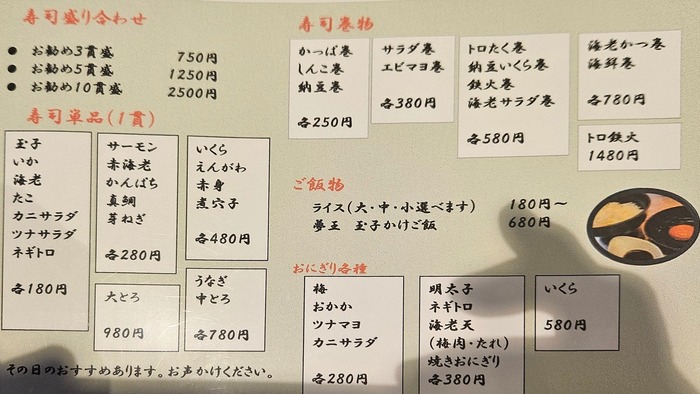 寿司盛り合わせ
● お勧め3貫盛 750円
● お勧め5貫盛 1250円
● お勧め10貫盛 2500円
寿司単品(1貫)
玉子
いか
海老
たこ
カニサラダ
ツナサラダ
ネギトロ
各180円
サーモン
赤海老
かんぱち
真鯛
芽ねぎ
各280円
大とろ
980円
いくら
えんがわ
赤身
煮穴子
各480円
うなぎ
中とろ
各780円
その日のおすすめあります。お声かけください。
寿司巻物
かっぱ巻
しんこ巻
納豆巻
各250円
サラダ巻
エビマヨ巻
各380円
トロたく巻
納豆いくら巻
鉄火巻
海老サラダ巻
各580円
海老かつ巻
海鮮巻
各780円
トロ鉄火
1480円
ご飯物
ライス(大・中・小選べます) 180円〜
夢王 玉子かけご飯 680円
おにぎり各種
梅
おかか
ツナマヨ
カニサラダ
各280円
明太子
ネギトロ
海老天
(梅肉・たれ)
焼きおにぎり
各380円
いくら
580円